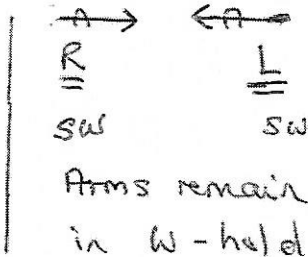 R L
sw sw
Arms remain
in W-hold